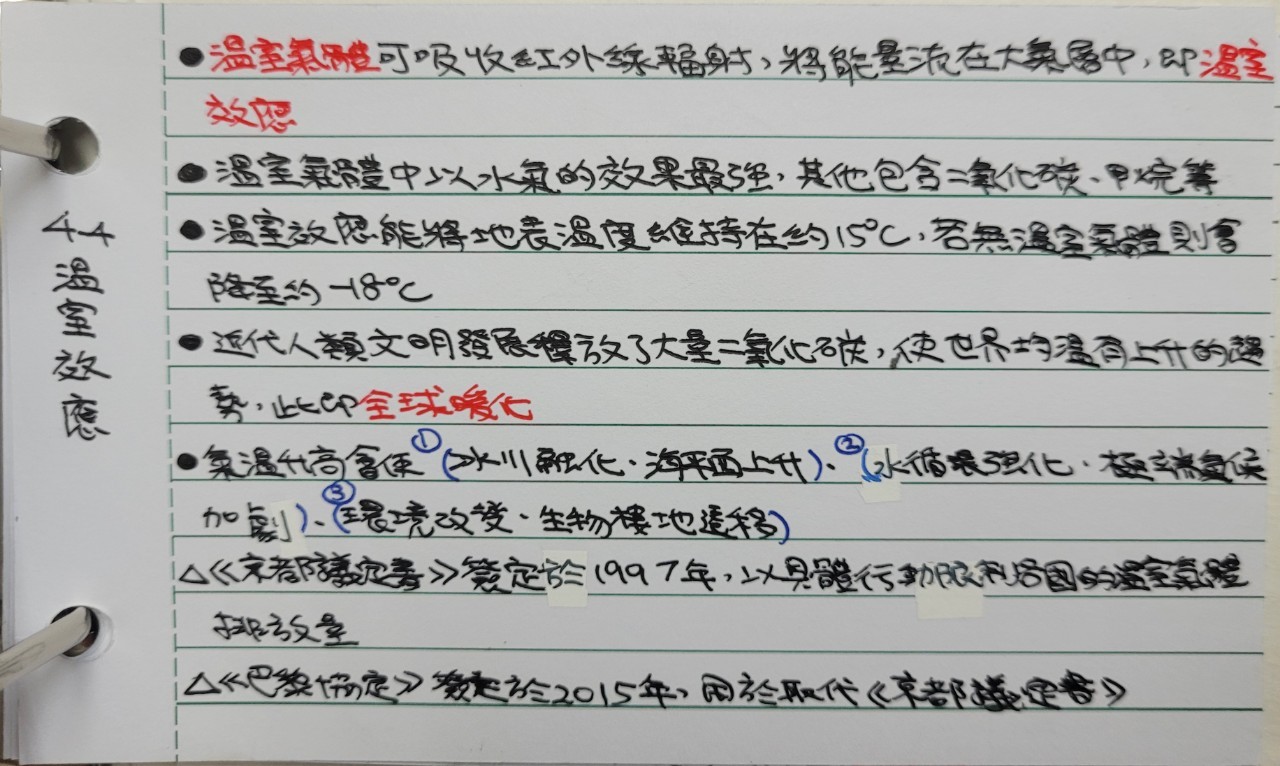 4-4 溫室效應
●溫室氣體可吸收紅外線輻射,將能量流在大氣層中,即溫室
效應
●溫室氣體中以水氣的效果最強,其他包含二氧化碳、甲烷等
●溫室效應能將地表溫度維持在約15°C,若無溫室氣體則會
降至約-18°C
●近代人類文明發展釋放了大量二氧化碳,使世界均溫有上升的趨
勢,此即全球暖化
●氣溫升高會使①(冰川融化、海平面上升)、②(水循環強化、極端氣候
加劇)、③(環境改變、生物棲地遷移)
△《京都議定書》簽定於1997年,以具體行動限制各國的溫室氣體
排放量
△《巴黎協定》簽定於2015年,用於取代《京都議定書》